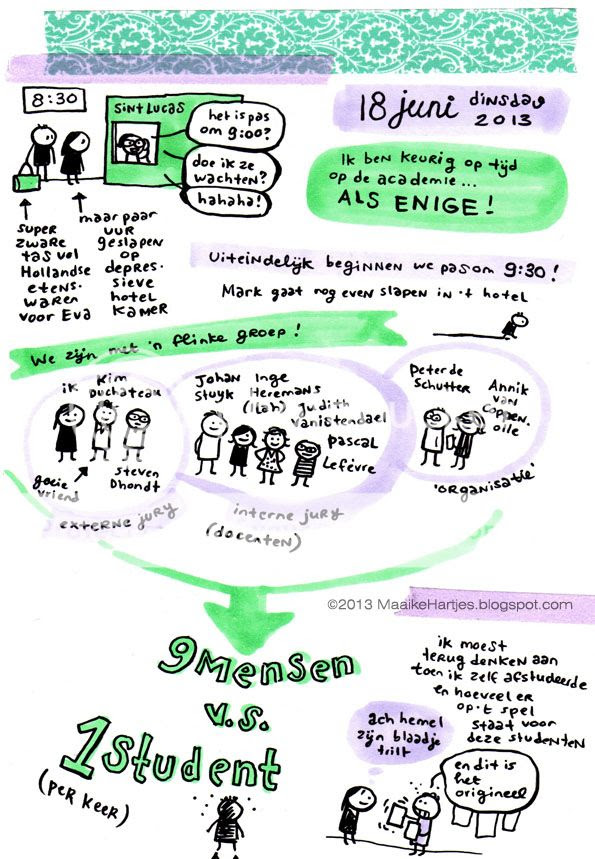 8:30
SINT LUCAS
het is pas
om 9:00?
doe ik ze
wachten?
hahaha!
18 juni dinsdag
2013
Ik ben keurig op tijd
op de academie...
ALS ENIGE!
super
zware
tas vol
Hollandse
etens-
waren
voor Eva
maar paar
uur
geslapen
op
depres-
sieve
hotel
kamer
Uiteindelijk beginnen we pas om 9:30!
Mark gaat nog even slapen in 't hotel
We zijn met 'n flinke groep!
ik
Kim
Duchateau
goeie
vriend
Steven
Dhondt
externe jury
Johan
Stuyk
Inge
Heremans
(Ilah)
Judith
Vanistendael
Pascal
Lefèvre
interne jury
(docenten)
Peter de
Schutter
Annik
van
Coppen-
olle
'organisatie'
©2013 MaaikeHartjes.blogspot.com
9 Mensen
v.s.
1 student
(per keer)
ik moest
terug denken aan
toen ik zelf afstudeerde
en hoeveel er
op 't spel
staat voor
deze studenten
ach hemel
zijn blaadje
trilt
en dit is
het
origineel